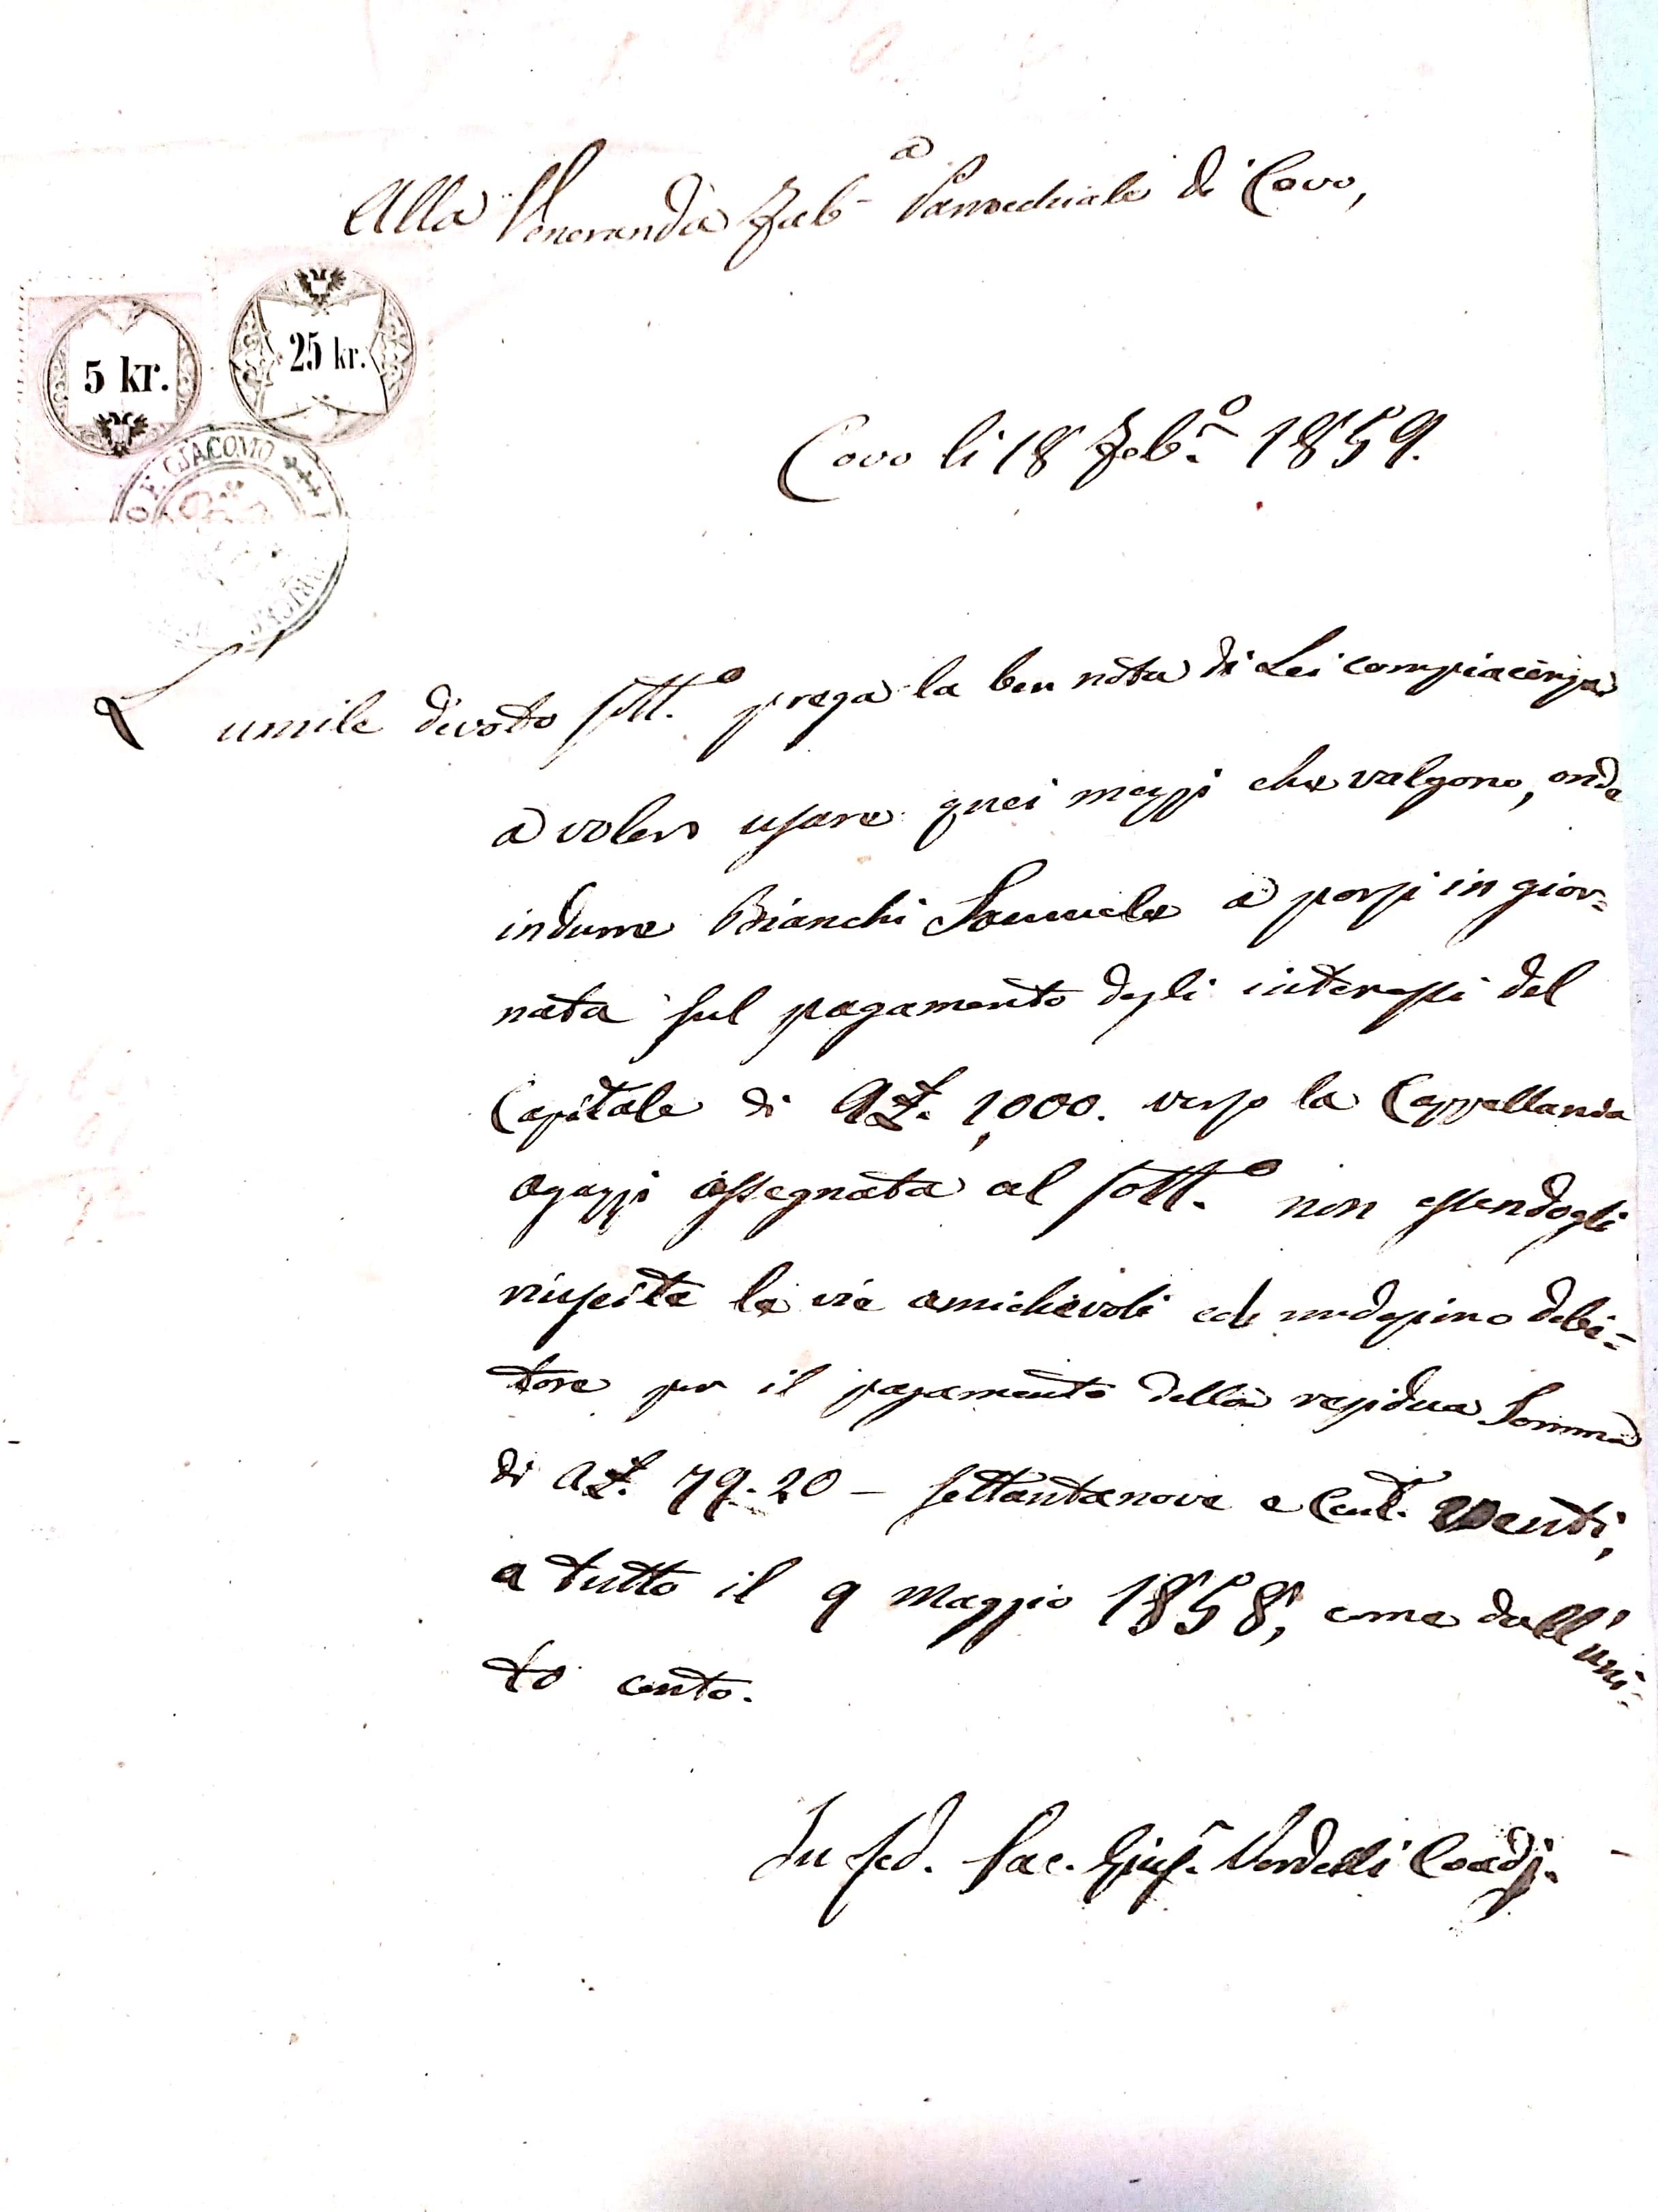 Alla Veneranda Fab.a Parrocchiale di Covo,
5 kr.
25 kr.
Covo li 18 Feb.o 1859.
E GIACOMO
L'umile divoto sott.o prega la ben nota di Lei compiacenza
a voler usare quei mezzi che valgono, onde
indurre Bianchi Samuele a porsi in gior=
nata sul pagamento degli interessi del
Capitale di A£. 1,000. verso la Cappellania
Agazzi assegnata al sott.o non essendogli
riuscite le vie amichevoli col medesimo debi=
tore per il pagamento della residua Somma
di A£. 79.20 – settantanove e Cent. venti,
a tutto il 9 Maggio 1858, come dall'uni=
to conto.
In fed. Sac. Gius.e Verdelli Coadj.